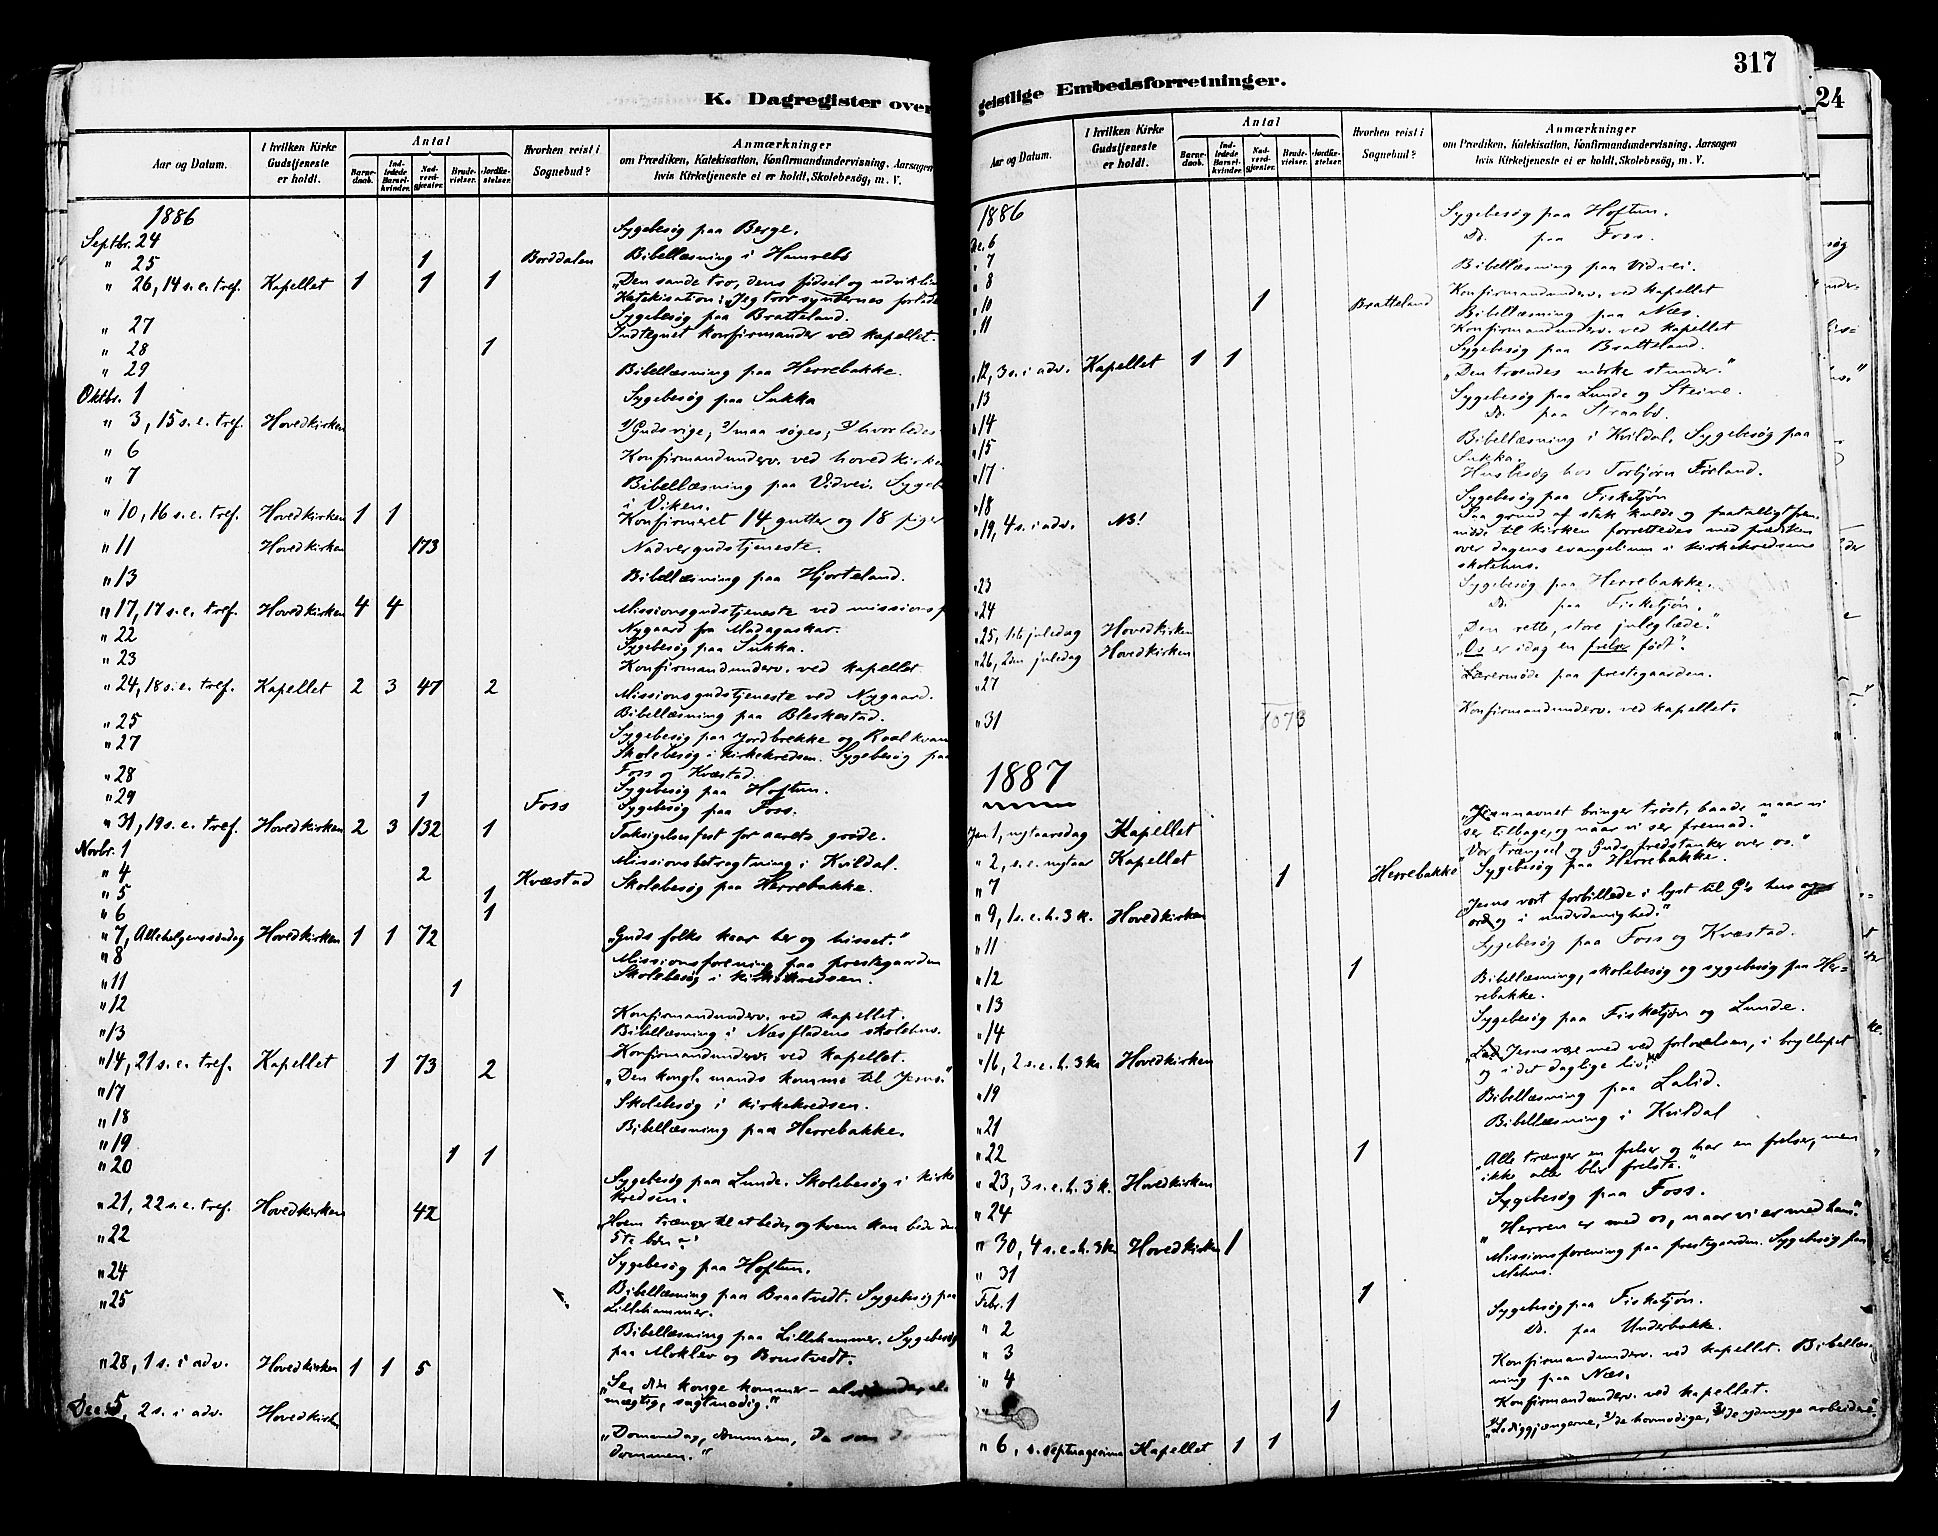 K. Dagregister over
Aar og Datum.
I hvilken Kirke Gudstjeneste er holdt.
Antal
Barnedaab.
Indledede Barselkvinder.
Nadverdgjester.
Brudevielser.
Jordfæstelser.
Hvorhen reist i Sognebud?
Anmærkninger
om Prædiken, Katekisation, Konfirmandundervisning, Aarsagen
hvis Kirketjeneste ei er holdt, Skolebesøg, m. V.
1886
Septbr. 24 Sygebesøg paa Berge.
" 25 1 Borddalen Bibellæsning i Hamrebø
" 26, 14 s. e. tref. Kapellet 1 1 1 "Den sande tro, dens fødsel og
Katekisation: "Jeg tror syndernes
" 27 Sygebesøg paa Bratteland.
" 28 1 Indtegnet konfirmander ved kapellet.
" 29 Bibellæsning paa Herrebakke.
Oktbr. 1 Sygebesøg paa Sukka
" 3, 15 s. e. tref. Hovedkirken 1/ Guds rige, 2/ maa søges, 3/ hvorledes
" 6 Konfirmandunderv. ved hovedkirken
" 7 Bibellæsning paa Vidvei. Sygeb
i Viken.
" 10, 16 s. e. tref. Hovedkirken 1 1 Konfirmeret 14 gutter og 18 piger
" 11 Hovedkirken 173 Nadvergudstjeneste.
" 13 Bibellæsning paa Hjorteland.
" 17, 17 s. e. tref. Hovedkirken 4 4 Missionsgudstjeneste ved missionsp
" 22 Nygaard fra Madagaskar.
Sygebesøg paa Sukka.
" 23 Konfirmandunderv. ved kapellet
" 24, 18 s. e. tref. Kapellet 2 3 47 2 Missionsgudstjeneste ved Nygaard.
" 25 Bibellæsning paa Bleskestad.
" 27 Sygebesøg paa Jordbrekke og Roalkvam
Skolebesøg i kirkekredsen. Sygebesøg paa
" 28 Foss og Kvæstad.
" 29 1 Foss Sygebesøg paa Hoftun.
Sygebesøg paa Foss.
" 31, 19 s. e. tref. Hovedkirken 2 3 132 1 Taksigelsesfest for aarets grøde.
Novbr. 1 Missionsbetragtning i Kvildal.
" 4 2 Kvæstad Skolebesøg paa Herrebakke.
" 5 1
" 6 1
" 7, Allehelgenssøndag Hovedkirken 1 1 72 "Guds folks kaar her og hisset."
" 8 Missionsforening paa prestegaarden
" 11 1 Skolebesøg i kirkekredsen.
" 12 Konfirmandunderv. ved kapellet.
" 13 Bibellæsning i Næsfladens skolehus.
Konfirmandunderv. ved kapellet.
" 14, 21 s. e. tref. Kapellet 1 73 2 "Den kongl. mands komme til Jesus."
" 17 Skolebesøg i kirkekredsen.
" 18 Bibellæsning paa Herrebakke.
" 19
" 20 1 1
Sygebesøg paa Lunde. Skolebesøg i kirke
kredsen.
" 21, 22 s. e. tref. Hovedkirken 42 "Hvem trænger til at bede, og hvem kan bede den
" 22 5te bøn?"
" 24 Sygebesøg paa Hoftun.
" 25 Bibellæsning paa Braatvedt. Sygebesøg paa
Lillehammer.
Bibellæsning paa Lillehammer. Sygebesøg
" 28, 1 s. i adv. Hovedkirken 1 1 5 paa Moklev og Brustvedt.
"Se, din konge kommer –
mægtig, sagtmodig."
Dec. 5, 2 s. i adv. Hovedkirken "Dommedag, dommeren,
dommen."
geistlige Embedsforretninger.
317
24
Aar og Datum.
I hvilken Kirke Gudstjeneste er holdt.
Antal
Barnedaab.
Indledede Barselkvinder.
Nadverdgjester.
Brudevielser.
Jordfæstelser.
Hvorhen reist i Sognebud?
Anmærkninger
om Prædiken, Katekisation, Konfirmandundervisning, Aarsagen
hvis Kirketjeneste ei er holdt, Skolebesøg, m. V.
1886 Sygebesøg paa Hoftun.
De. 6 Do. paa Foss.
" 7 Bibellæsning paa Vidvei.
" 8 Konfirmandunderv. ved kapellet
" 10 1 Bratteland Bibellæsning paa Næs.
" 11 Konfirmandunderv. ved kapellet
Sygebesøg paa Bratteland.
" 12, 3 s. i adv. Kapellet 1 1 "Den troendes mørke stunder."
" 13 Sygebesøg paa Lunde og Steine.
" 14 Do. paa Straabø.
" 15 Bibellæsning i Kvildal. Sygebesøg paa
Sukka.
" 17 Husbesøg hos Torbjørn Førland.
" 18 Sygebesøg paa Fisketjøn
" 19, 4 s. i adv. NB! Paa grund af stæk kulde og faatalligt frem
møde til kirken forrettedes med prædiken
over dagens evangelium i kirkekredsens
skolehus.
" 23 Sygebesøg paa Herrebakke.
" 24 Do. paa Fisketjøn.
" 25, 1ste juledag Hovedkirken "Den rette, store juleglæde."
" 26, 2den juledag Hovedkirken "Os er idag en frelser født".
" 27 Lærermøde paa prestegaarden.
" 31 1073 Konfirmandunderv. ved kapellet.
1887
"Jesunavnet bringer trøst, baade naar vi
Jan. 1, nytaarsdag Kapellet ser tilbage, og naar vi ser fremad."
" 2, s. e. nytaar Kapellet "Vor trængsel og Guds fredstanker over os."
" 7 1 Herrebakke Sygebesøg paa Herrebakke.
" 9, 1 s. e. h. 3 k. Hovedkirken "Jesus vort forbillede i lyst til G's hus og
ord og i underdanighed."
" 11 Sygebesøg paa Foss og Kvæstad.
" 12 1 Bibellæsning, skolebesøg og sygebesøg paa Her-
rebakke.
" 13 Sygebesøg paa Fisketjøn og Lunde.
" 14
" 16, 2 s. e. h. 3 k. Hovedkirken "Lad Jesus være med ved forlovelsen, i bryllupet
og i det daglige liv."
" 19 Bibellæsning paa Lalid.
" 21 Bibellæsning i Kvildal
" 22 1
" 23, 3 s. e. h. 3 k. Hovedkirken "Alle trænger en frelser og har en frelser, men
ikke alle blir frelste."
" 24 Sygebesøg paa Foss.
" 30, 4 s. e. h. 3 k. Hovedkirken 1 "Herren er med os, naar vi er med ham."
" 31 Missionsforening paa prestegaarden. Sygebesøg paa
Mehus.
Febr. 1 1 Sygebesøg paa Fisketjøn.
" 2 Do. paa Underbakke.
" 3 Konfirmandunderv. ved kapellet. Bibellæs-
ning paa Næs.
" 4 Konfirmandunderv. ved kapellet.
1
" 6, s. septuagesima Kapellet 1 1 "1/ Lediggjængerne, 2/ de hovmodige, 3/ de ydmyge arbeidere."